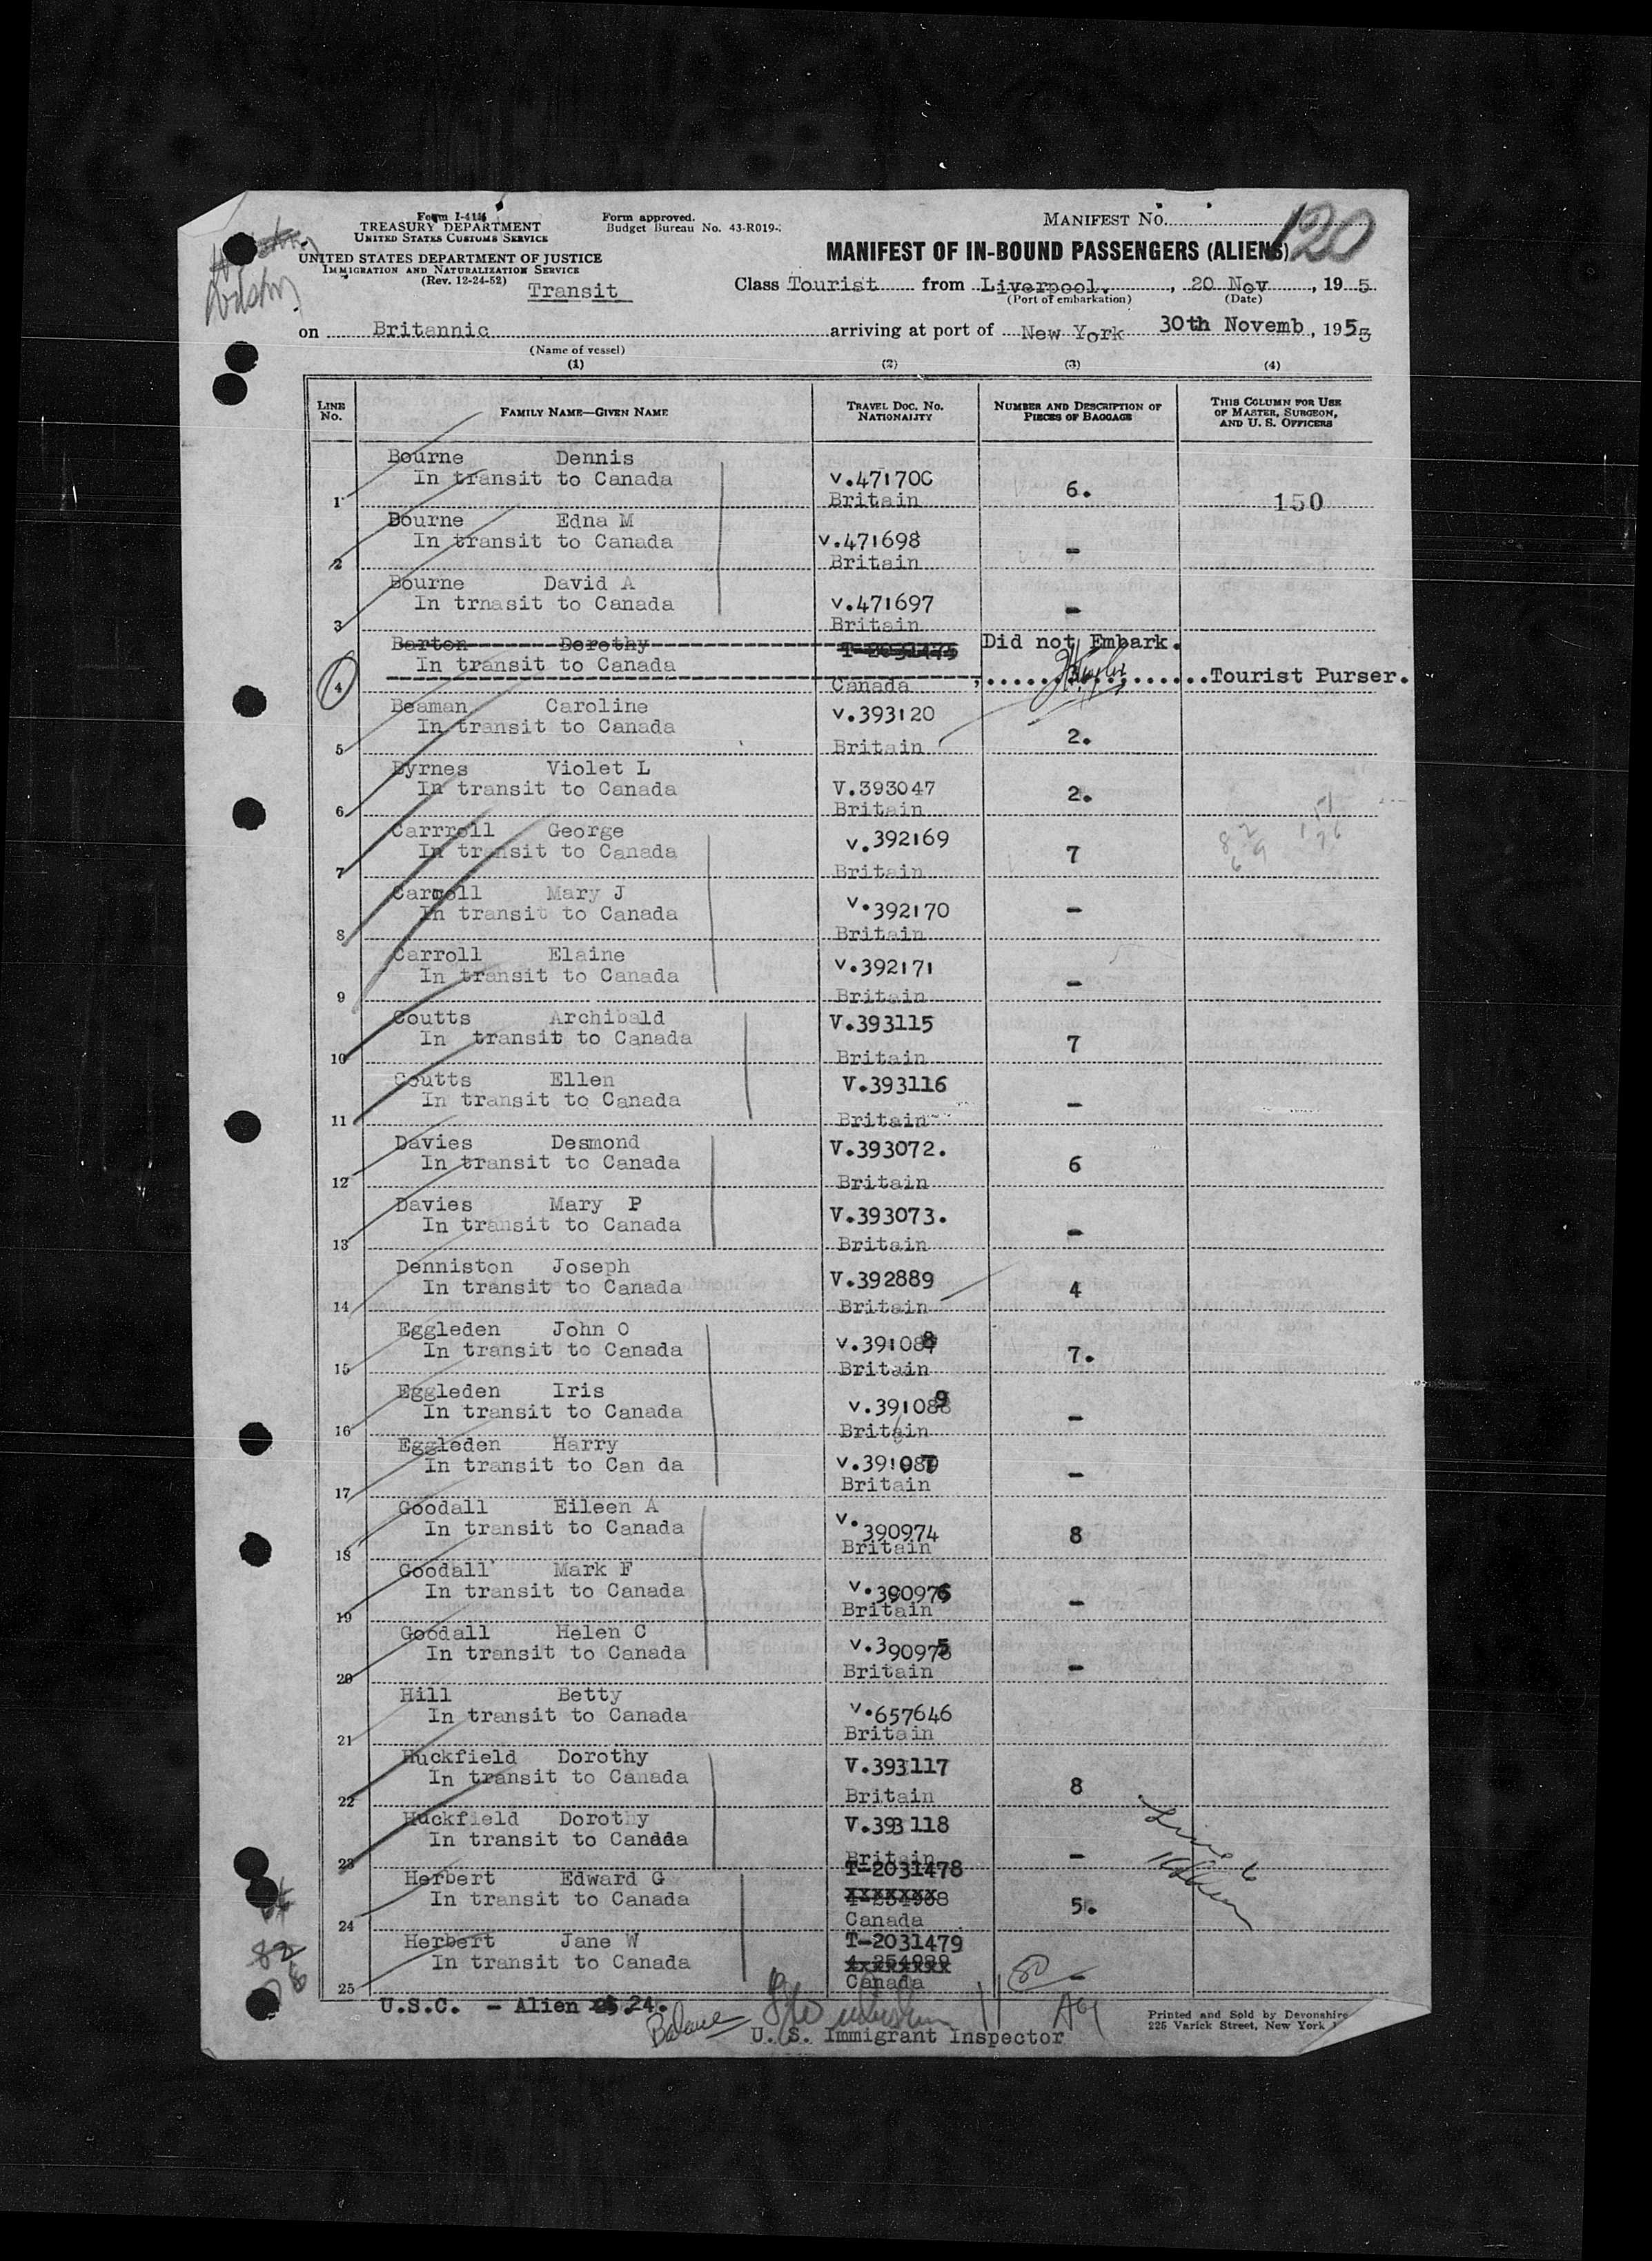 Form I-418
TREASURY DEPARTMENT
UNITED STATES CUSTOMS SERVICE
UNITED STATES DEPARTMENT OF JUSTICE
IMMIGRATION AND NATURALIZATION SERVICE
(Rev. 12-24-52)
Transit
Form approved.
Budget Bureau No. 43-R019-
MANIFEST NO.
120
MANIFEST OF IN-BOUND PASSENGERS (ALIENS)
Class Tourist from Liverpool. , 20 Nov , 19 5
(Port of embarkation) (Date)
on Britannic arriving at port of New York 30th Novemb , 195
(Name of vessel)
(1) (2) (3) (4)
LINE NO. FAMILY NAME—GIVEN NAME TRAVEL DOC. NO. NATIONALITY NUMBER AND DESCRIPTION OF PIECES OF BAGGAGE THIS COLUMN FOR USE OF MASTER, SURGEON, AND U. S. OFFICERS
Bourne Dennis
In transit to Canada v.471700 6.
1 Britain 150
Bourne Edna M
In transit to Canada v.471698 -
2 Britain
Bourne David A
In trnasit to Canada v.471697 -
3 Britain
Barton Dorothy Did not Embark.
In transit to Canada
4 Canada Tourist Purser.
Beaman Caroline v.393120
In transit to Canada
5 Britain 2.
Byrnes Violet L
In transit to Canada V.393047 2.
6 Britain
Carrroll George
In transit to Canada v.392169 7
7 Britain
Carroll Mary J
In transit to Canada v.392170 -
8 Britain
Carroll Elaine
In transit to Canada v.392171 -
9 Britain
Coutts Archibald V.393115
In transit to Canada 7
10 Britain
Coutts Ellen V.393116
In transit to Canada -
11 Britain
Davies Desmond V.393072.
In transit to Canada 6
12 Britain
Davies Mary P V.393073.
In transit to Canada -
13 Britain
Denniston Joseph V.392889
In transit to Canada 4
14 Britain
Eggleden John O
In transit to Canada v.391088 7.
15 Britain
Eggleden Iris
In transit to Canada v.391089 -
16 Britain
Eggleden Harry
In transit to Can da v.391087 -
17 Britain
Goodall Eileen A
In transit to Canada v.390974 8
18 Britain
Goodall Mark F
In transit to Canada v.390976 -
19 Britain
Goodall Helen C
In transit to Canada v.390975 -
20 Britain
Hill Betty
In transit to Canada v.657646
21 Britain
Huckfield Dorothy V.393117
In transit to Canada 8
22 Britain
Huckfield Dorothy V.393118
In transit to Canada -
23 Britain
Herbert Edward G T-2031478
In transit to Canada 5.
24 Canada
Herbert Jane W T-2031479
In transit to Canada -
25 Canada
U.S.C. - Alien 24.
Balance
U. S. Immigrant Inspector
Printed and Sold by Devonshire
225 Varick Street, New York